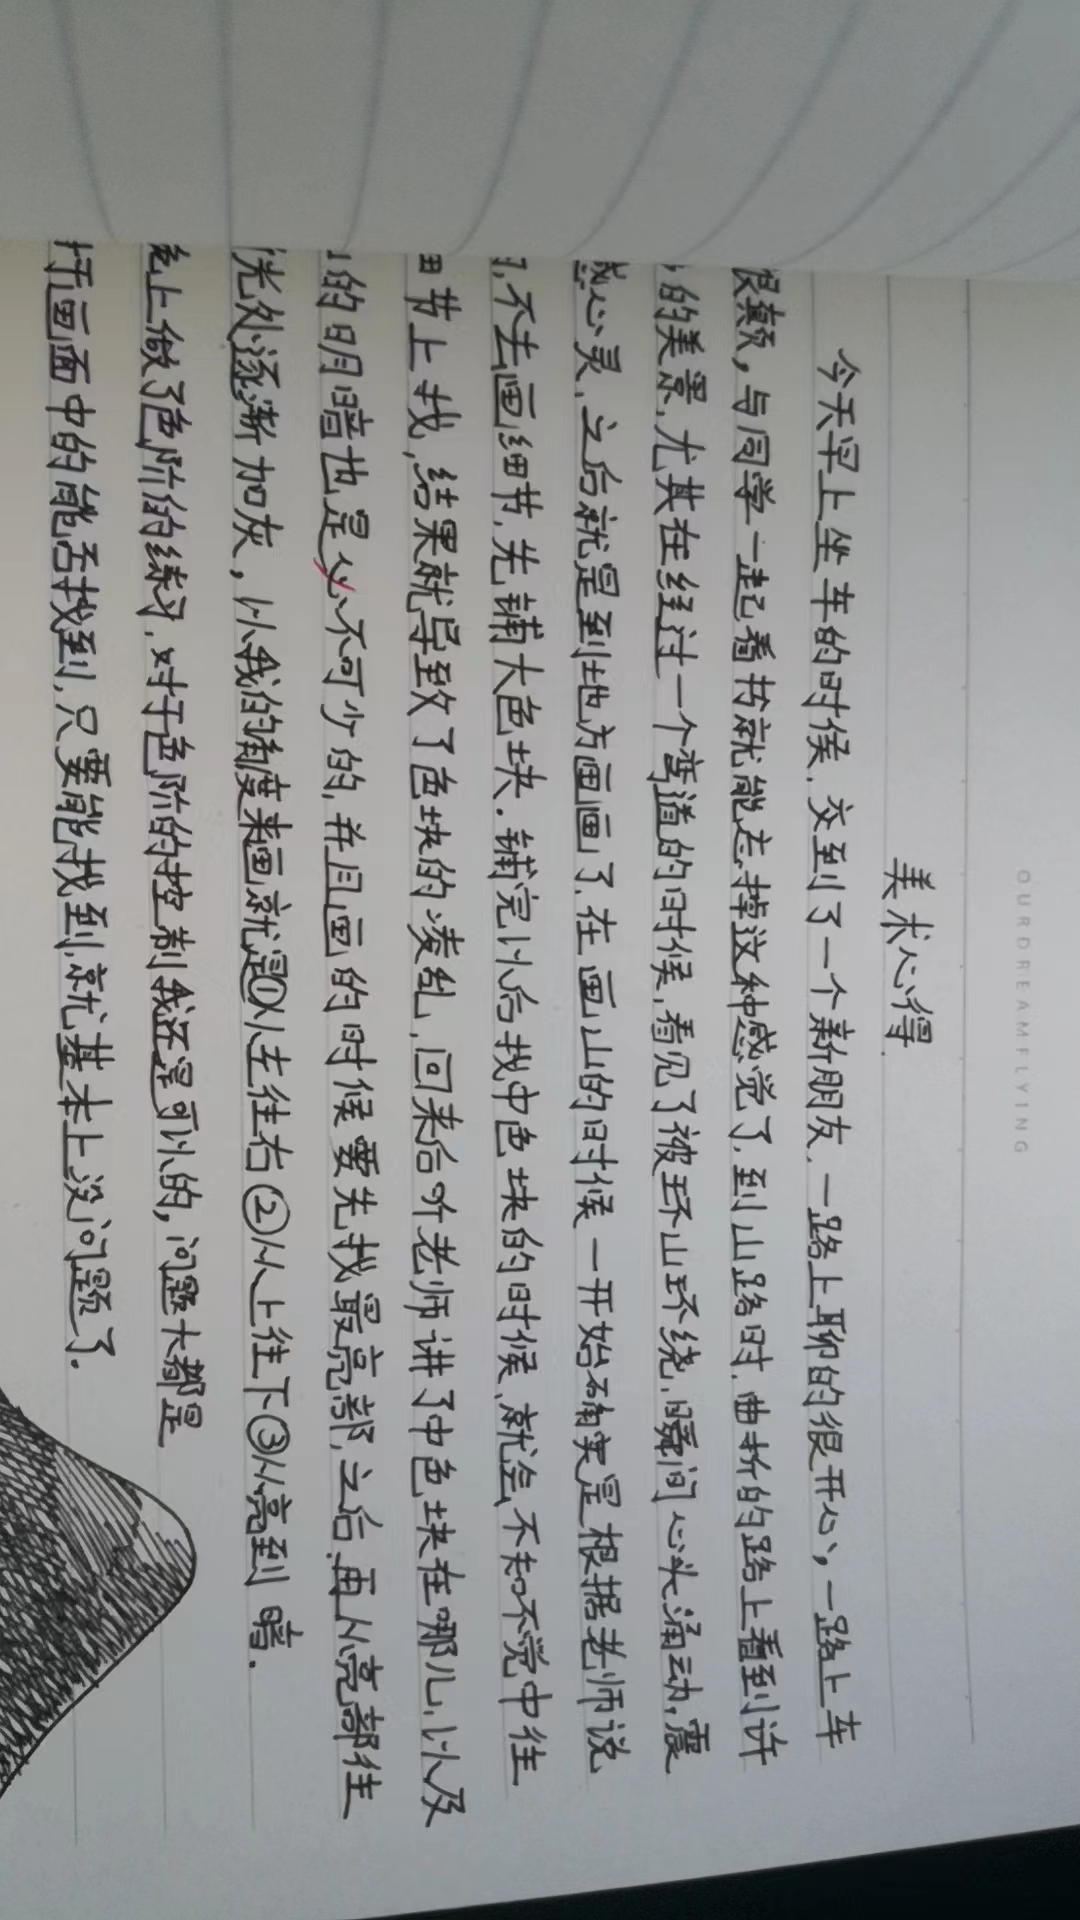 OURDREAMFLYING
美术心得
今天早上坐车的时候，交到了一个新朋友，一路上聊的很开心，一路上车
很颠，与同学一起看书就能忘掉这种感觉了，到山路时，曲折的路上看到许
的美景，尤其在经过一个弯道的时候，看见了被环山环绕，瞬间心头涌动，震
感心灵，之后就是到地方画画了，在画山的时候一开始确实是根据老师说
，不去画细节，先铺大色块，铺完以后找中色块的时候，就会不知不觉中往
细节上找，结果就导致了色块的凌乱，回来后听老师讲了中色块在哪儿，以及
的明暗也是必不可少的，并且画的时候要先找最亮部，之后，再从亮部往
光处逐渐加灰，以我的角度来画就是①从左往右②从上往下③从亮到暗.
色上做了色阶的练习，对于色阶的控制我还是可以的，问题大都是
画面中的能否找到，只要能找到，就基本上没问题了.